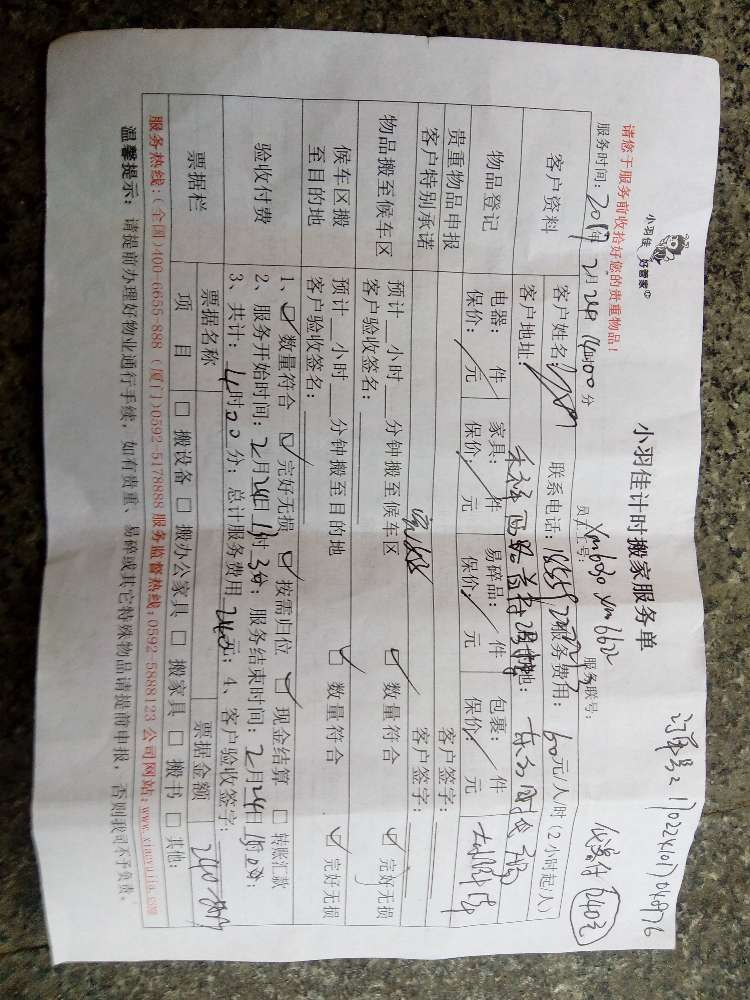 小羽佳
好管家
小羽佳计时搬家服务单
请您于服务前收拾好您的贵重物品！
服务时间：2017年2月24日 14时00分 员工工号：Xm6030 Xm6622 服务联号：
客户资料
客户姓名： 联系电话： 服务费用：60元/人/时（2小时起/人）
客户地址： 目的地：
物品登记
电器：/件 家具：/件 易碎品：/件 包裹：/件
保价：/元 保价：/元 保价：/元 保价：/元
贵重物品申报
客户特别承诺
客户签字：
物品搬至候车区
预计__小时__分钟搬至候车区 数量符合 完好无损
客户验收签名： 客户签字：
候车区搬
至目的地
预计__小时__分钟搬至目的地 数量符合 完好无损
客户验收签名：
验收付费
1、数量符合 完好无损 按需归位 现金结算 转账汇款
2、服务开始时间：2月24日 服务结束时间：2月24日
3、共计：4时00分；总计服务费用240元；4、客户验收签字：
票据栏
票据名称 票据金额 240
项目 搬设备 搬办公家具 搬家具 搬书 其他：
服务热线：（全国）400-6655-888（厦门）0592-5178888 服务监督热线：0592-5888123 公司网站：www.xiaoyujia.com
温馨提示：请提前办理好物业通行手续，如有贵重、易碎或其它特殊物品请提前申报，否则我司不予负责。